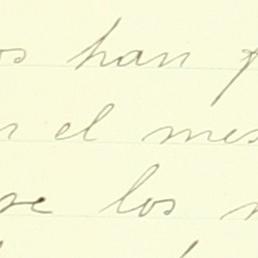 os han
n el mes
se los